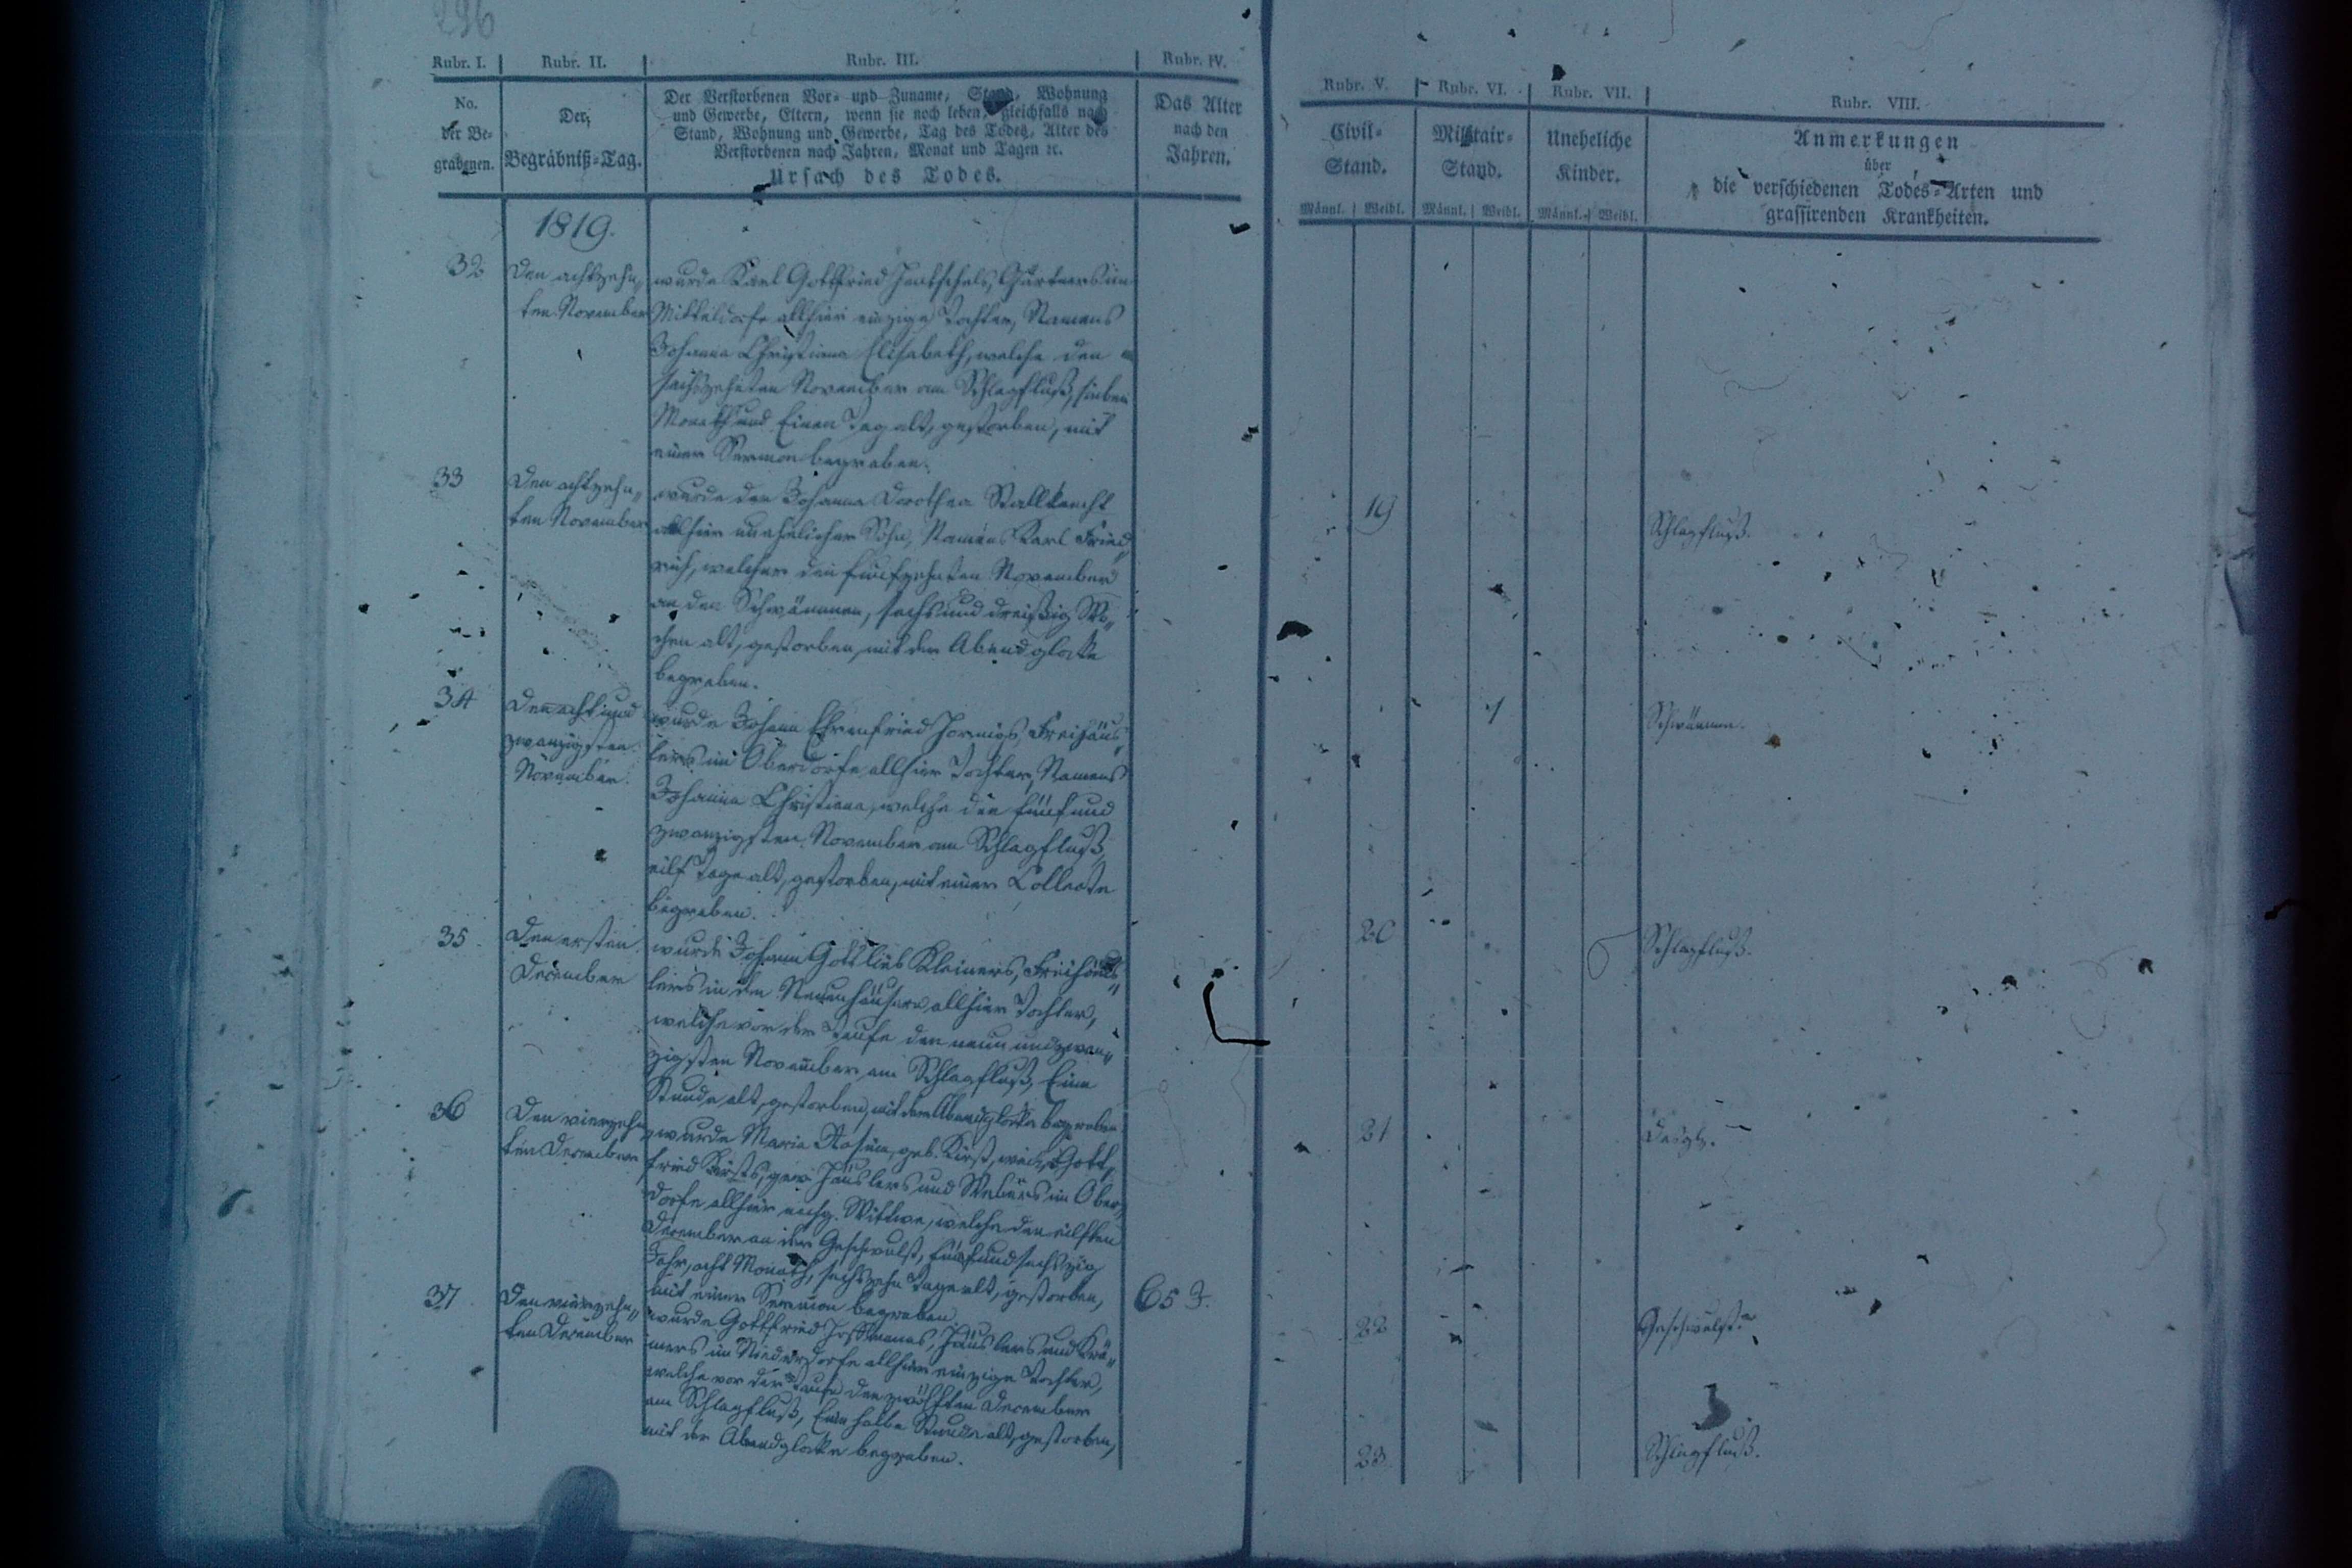 296
Rubr. I. Rubr. II. Rubr. III. Rubr. IV.
No. der Be= grabenen.
Der Begräbniß=Tag.
Der Verstorbenen Vor= und Zuname, Stand, Wohnung
und Gewerbe, Eltern, wenn sie noch leben, gleichfalls nach
Stand, Wohnung und Gewerbe, Tag des Todes, Alter des
Verstorbenen nach Jahren, Monat und Tagen ꝛc.
Ursach des Todes.
Das Alter
nach den
Jahren.
1819.
32
Den achtzehn„
ten November
wurde Karl Gottfried Hentschels, Gärtners im
Mitteldorfe allhier einzige Tochter, Namens
Johanna Christiana Elisabeth, welche den
sechszehnten November am Schlagfluß, sieben
Monath und Einen Tag alt, gestorben, mit
einer Sermon begraben.
33
Den achtzehn„
ten November
wurde der Johanna Dorothea Stallknecht
allhier unehelicher Sohn, Namens Karl Fried„
rich, welcher den funfzehnten November
an den Schwämmen, sechs und dreißig Wo„
chen alt, gestorben, mit der Abendglocke
begraben.
34
Den acht und
zwanzigsten
November.
wurde Johann Ehrenfried Hornigs, Freihäus„
lers im Oberdorfe allhier Tochter, Namens
Johanna Christiana, welche den fünf und
zwanzigsten November am Schlagfluß,
eilf Tage alt, gestorben, mit einer Collecte
begraben.
35
Den ersten
December
wurde Johann Gottlieb Kleiners, Freihäus„
lers in den Neuenhäusern allhier Tochter,
welche vor der Taufe den neun und zwan„
zigsten November am Schlagfluß, Eine
Stunde alt, gestorben, mit der Abendglocke begraben.
36
Den vierzehn„
ten December
wurde Maria Rosina, geb. Kirst, weil. Gott„
fried Kirsts, gew. Häuslers und Webers im Ober„
dorfe allhier Wittwe, welche den eilften
December an der Geschwulst, fünf und sechszig
Jahr, acht Monath, sechszehn Tage alt, gestorben,
mit einer Sermon begraben.
65 J.
37
Den vierzehn„
ten December
wurde Gottfried Hoffmanns, Häuslers und Krä„
mers im Niederdorfe allhier einzige Tochter,
welche vor der Taufe den zwölften December
am Schlagfluß, Eine halbe Stunde alt, gestorben,
mit der Abendglocke begraben.
Rubr. V. Rubr. VI. Rubr. VII. Rubr. VIII.
Civil=
Stand.
Militair=
Stand.
Uneheliche
Kinder.
Anmerkungen
über
die verschiedenen Todes=Arten und
grassirenden Krankheiten.
Männl. Weibl. Männl. Weibl. Männl. Weibl.
19 Schlagfluß.
1 Schwämme.
20 Schlagfluß.
21 Desgl.
22 Geschwulst.
23 Schlagfluß.